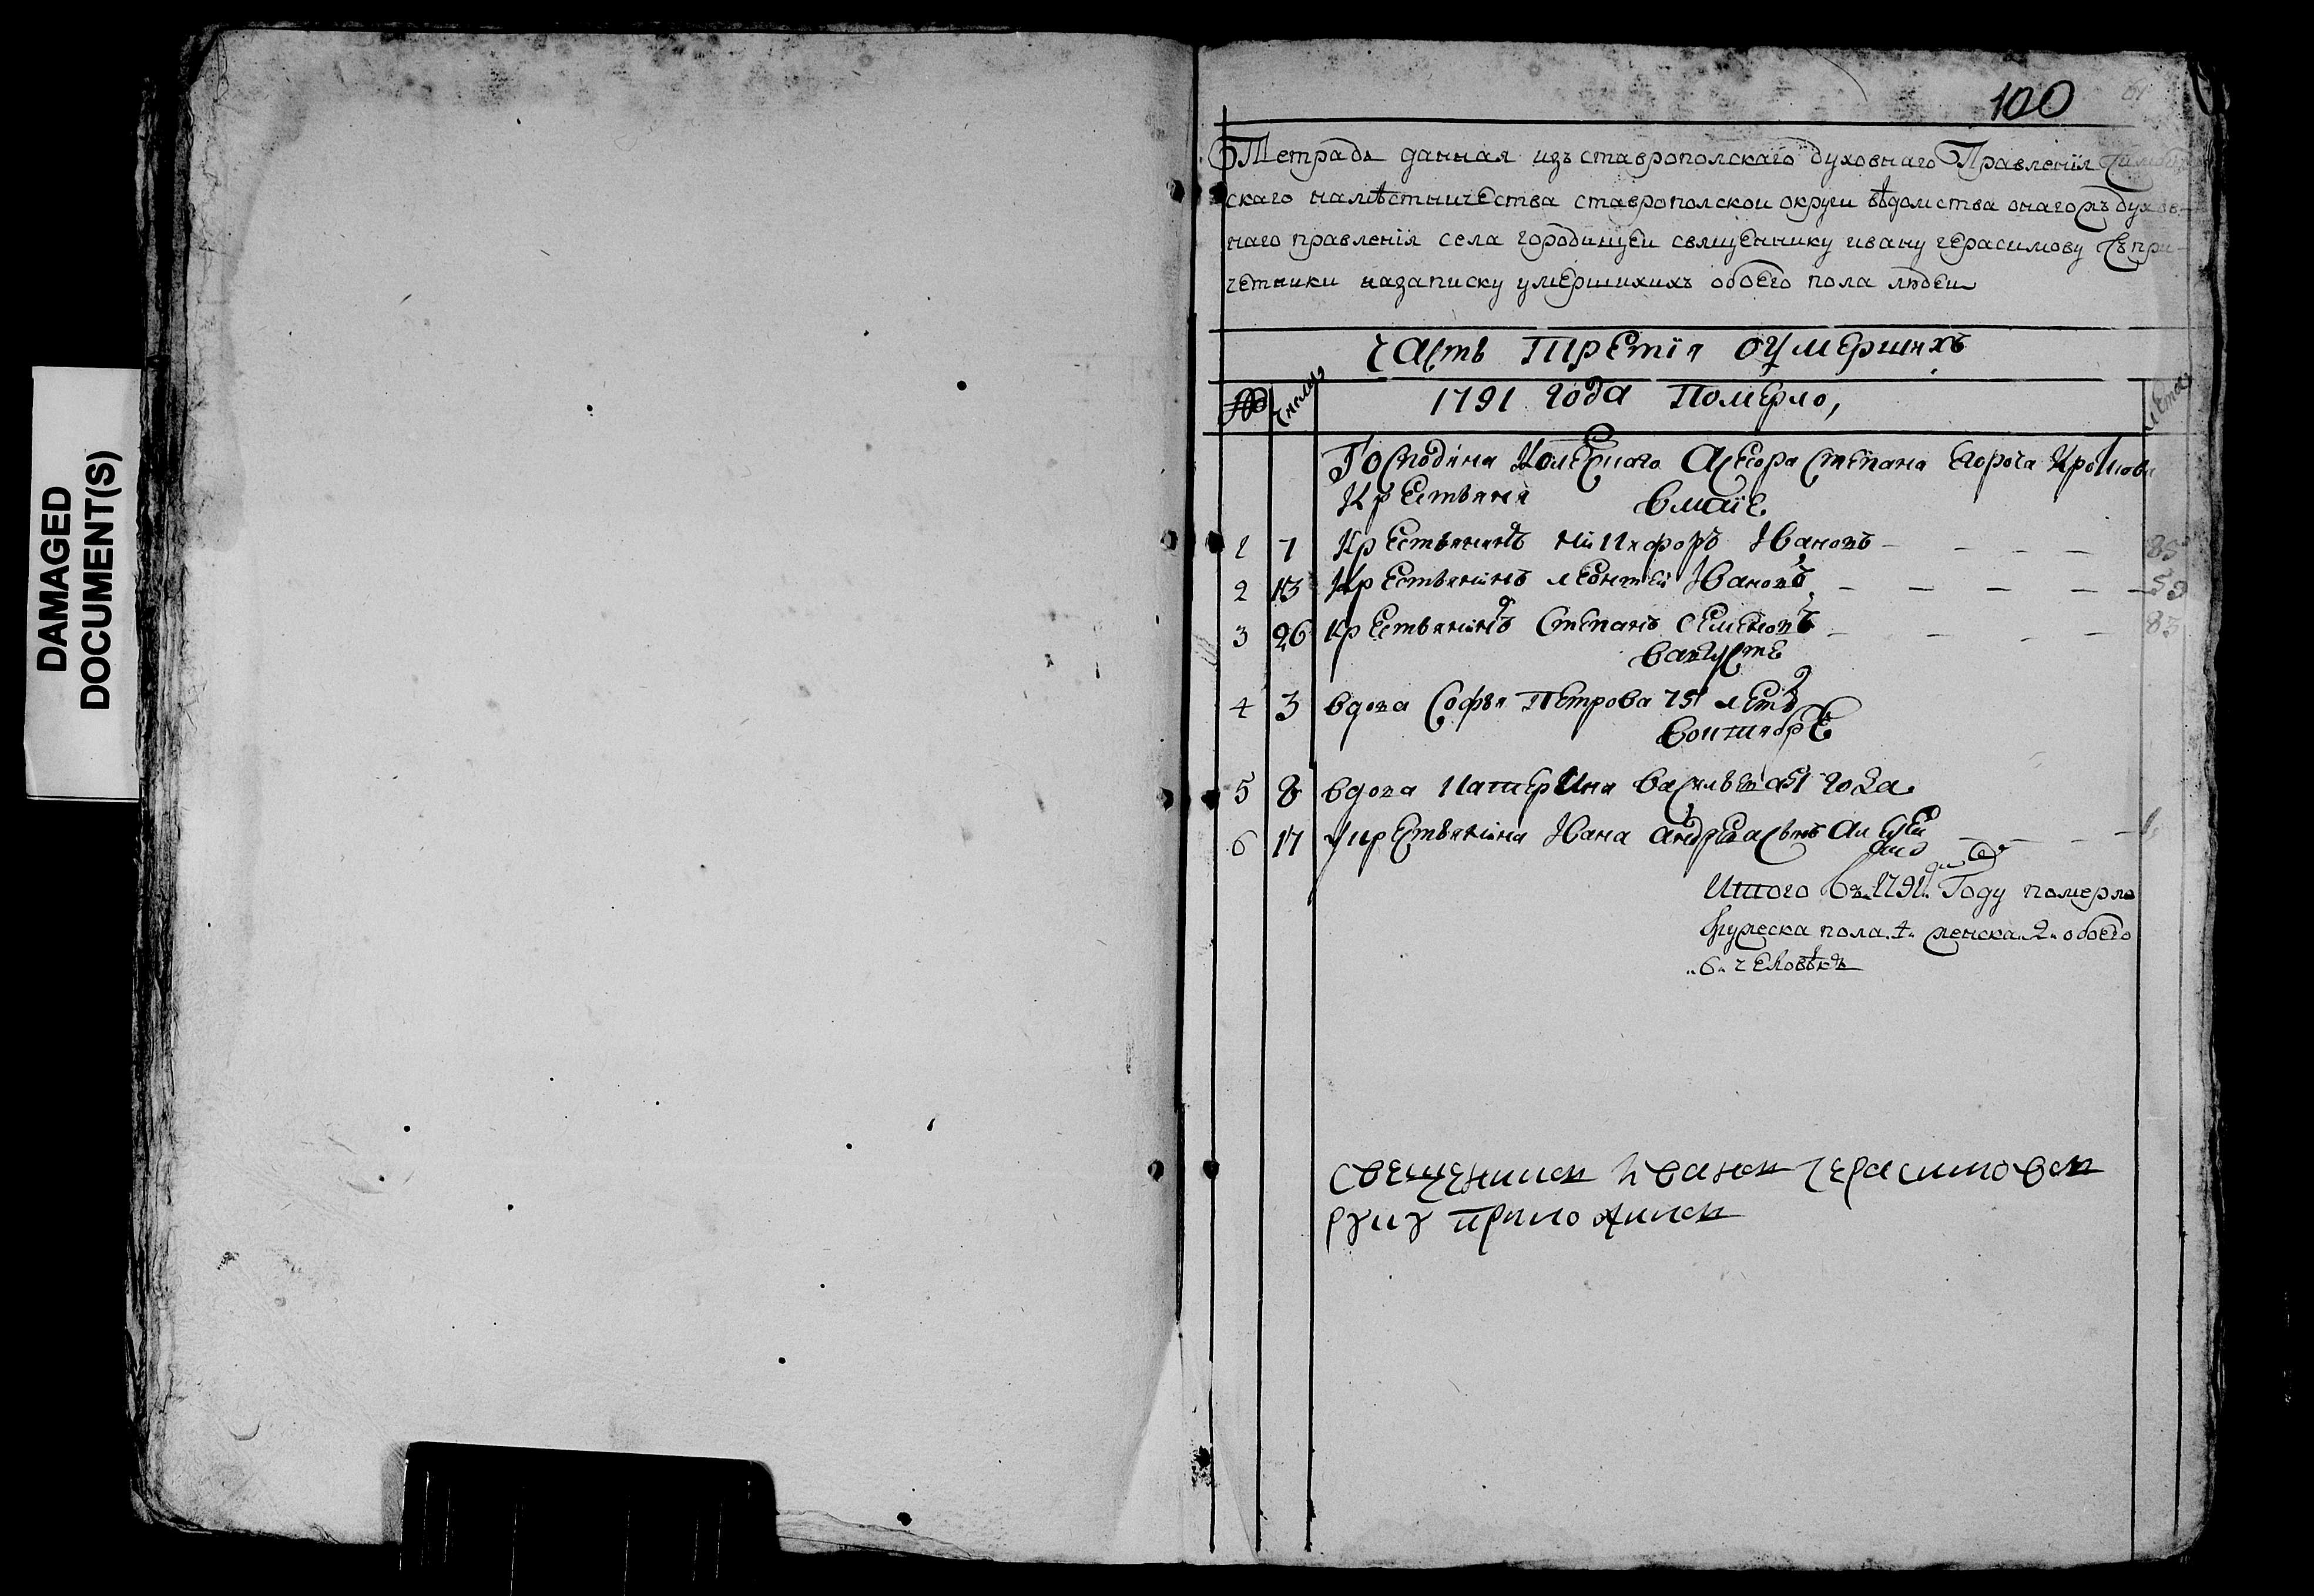 DAMAGED
DOCUMENT(S)
100
Тетрадь данная изъ ставрополскаго духовнаго Правленїя
скаго намѣстничества ставрополской округи вѣдомства онагожъ духов-
наго правленїя села городищеи священнику ивану герасимову съ при-
четники назаписку умершихихъ обоего пола людеи
Часть Третїя оумершихъ
№ числы 1791 года Померло, лета
Господина Колескаго Асесора Степана Егорова
Крестьяня
вмаїе
1 7 Крестьянинъ Никифоръ Ивановъ 85
2 13 Крестьянинъ леонтей Ивановъ 59
3 26 крестьянинъ Степанъ Семеновъ 83
вавгусте
4 3 вдова Софья Петрова 75 летъ
воктябрѣ
5 8 вдова Катерина Васильева 51 года
6 17 укрестьянина Ивана андреева сынъ Алексей
Итого въ 1791 Году померло
мужеска пола 4 женска 2 обоего
6 человѣкъ
свещенникъ Иванъ герасимовъ
руку приложилъ